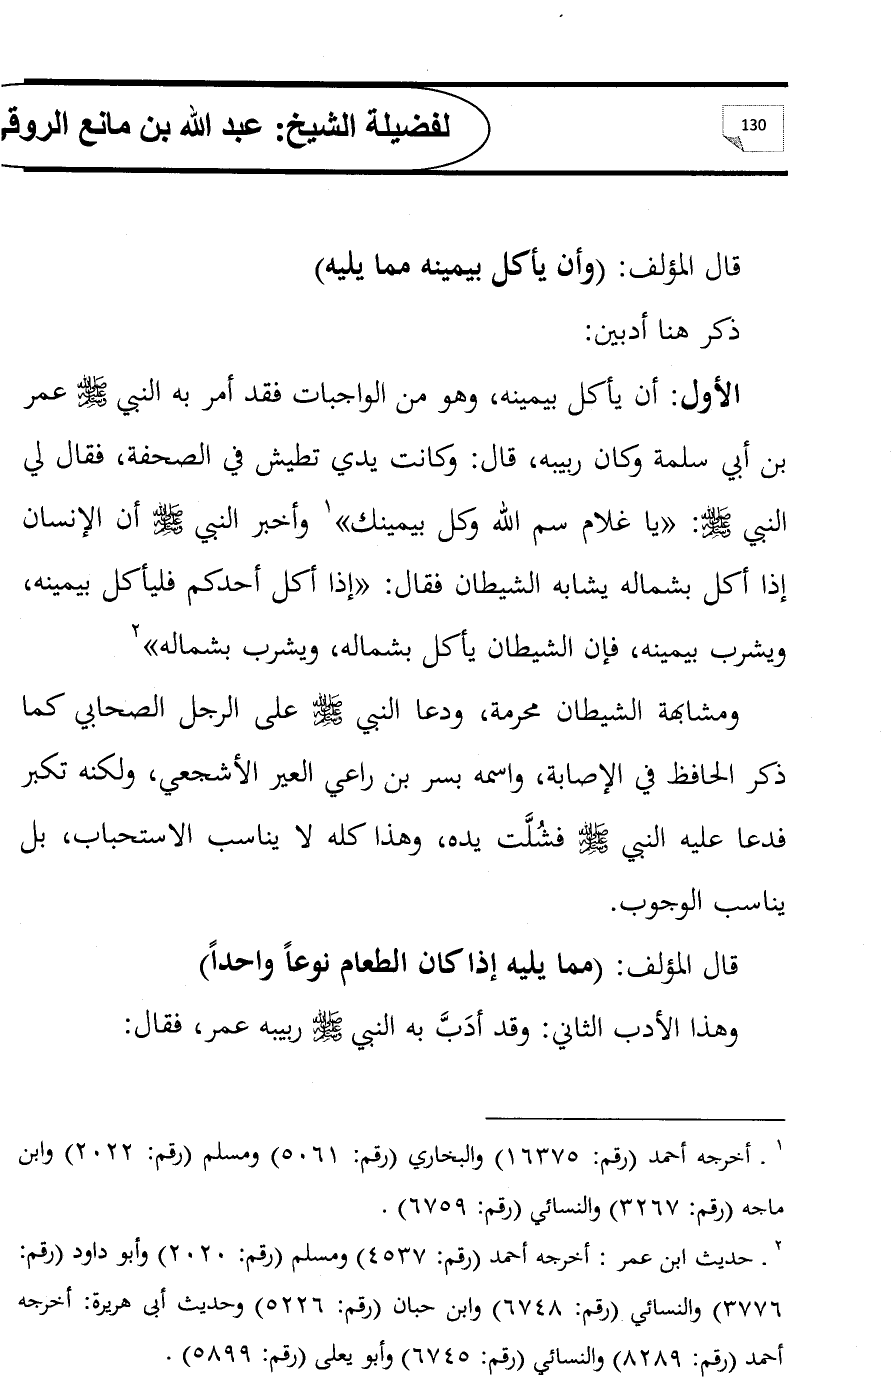 130
لفضيلة الشيخ: عبد الله بن مانع الروقي
قال المؤلف: (وأن يأكل بيمينه مما يليه)
ذكر هنا أدبين:
الأول: أن يأكل بيمينه، وهو من الواجبات فقد أمر به النبي ﷺ عمر
بن أبي سلمة وكان ربيبه، قال: وكانت يدي تطيش في الصحفة، فقال لي
النبي ﷺ: «يا غلام سم الله وكل بيمينك»١ وأخبر النبي ﷺ أن الإنسان
إذا أكل بشماله يشابه الشيطان فقال: «إذا أكل أحدكم فليأكل بيمينه،
ويشرب بيمينه، فإن الشيطان يأكل بشماله، ويشرب بشماله»٢
ومشابهة الشيطان محرمة، ودعا النبي ﷺ على الرجل الصحابي كما
ذكر الحافظ في الإصابة، واسمه بسر بن راعي العير الأشجعي، ولكنه تكبر
فدعا عليه النبي ﷺ فشُلَّت يده، وهذا كله لا يناسب الاستحباب، بل
يناسب الوجوب.
قال المؤلف: (مما يليه إذا كان الطعام نوعاً واحداً)
وهذا الأدب الثاني: وقد أدَبَّ به النبي ﷺ ربيبه عمر، فقال:
١ . أخرجه أحمد (رقم: ١٦٣٧٥) والبخاري (رقم: ٥٠٦١) ومسلم (رقم: ٢٠٢٢) وابن
ماجه (رقم: ٣٢٦٧) والنسائي (رقم: ٦٧٥٩) .
٢ . حديث ابن عمر : أخرجه أحمد (رقم: ٤٥٣٧) ومسلم (رقم: ٢٠٢٠) وأبو داود (رقم:
٣٧٧٦) والنسائي (رقم: ٦٧٤٨) وابن حبان (رقم: ٥٢٢٦) وحديث أبى هريرة: أخرجه
أحمد (رقم: ٨٢٨٩) والنسائي (رقم: ٦٧٤٥) وأبو يعلى (رقم: ٥٨٩٩) .